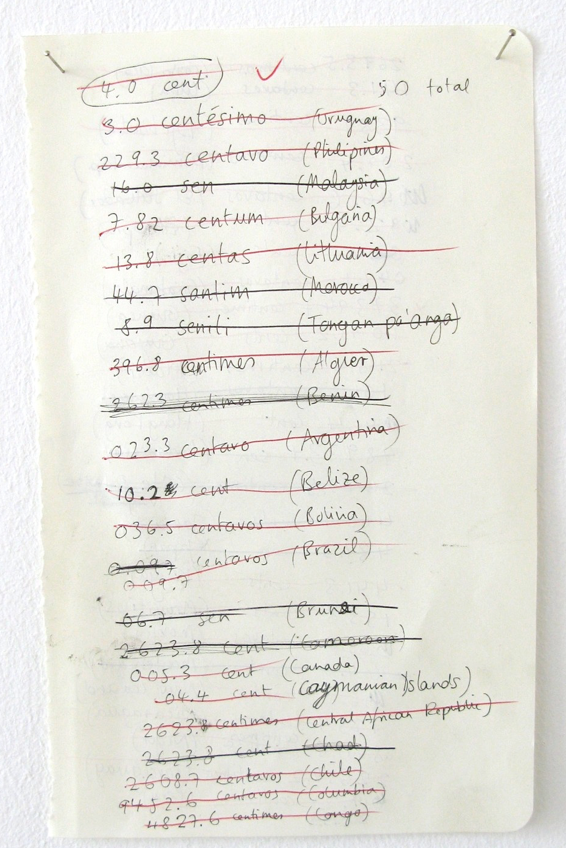 4.0 cent
50 total
3.0 centésimo (Uruguay)
229.3 centavo (Philipines)
16.0 sen (Malaysia)
7.82 centum (Bulgaria)
13.8 centas (Lithuania)
44.7 santim (Morocco)
8.9 seniti (Tongan pa'anga)
396.8 centimes (Algier)
2623 centimes (Benin)
023.3 centavo (Argentina)
10.2 cent (Belize)
036.5 centavos (Bolivia)
0.097 centavos (Brazil)
009.7
06.7 sen (Brunei)
2623.8 cent (Cameroon)
005.3 cent (Canada)
04.4 cent (Caymanian Islands)
2623.8 centimes (Central African Republic)
2623.8 cent (Chad)
2608.7 centavos (Chile)
9452.6 centavos (Columbia)
4827.6 centimes (Congo)